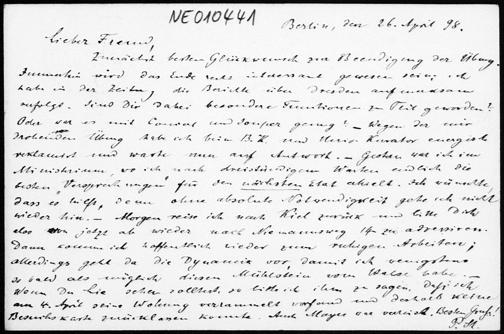 NE010441
Berlin, den 26. April 98.
Lieber Freund,
Zunächst besten Glückwunsch zur Beendigung der Übung.
Immerhin wird das Ende recht interessant gewesen sein; ich
habe in der Zeitung die Berichte über Dresden aufmerksam
verfolgt. Sind Dir dabei besondere Funktionen zu Teil geworden?
Oder war es mit und Souper genug? – Wegen der mir
drohenden Übung habe ich beim B.K. und Univ. Kurator energisch
reklamirt und warte nun auf Antwort. – Gestern war ich im
Ministerium, wo ich nach dreistündigem Warten endlich die
besten Versprechungen für den nächsten Etat erhielt. Ich wünschte,
dass es hilft, denn ohne absolute Notwendigkeit gehe ich nicht
wieder hin. – Morgen reise ich nach Kiel zurück und bitte Dich
also von jetzt ab wieder nach Niemannsweg 14 zu adressiren.
Dann komme ich hoffentlich wieder zum ruhigen Arbeiten;
allerdings geht da die Dynamik vor, damit ich wenigstens
so bald als möglich diesen Mühlstein vom Halse habe. –
Wenn Du Lie sehen solltest, so bitte ich ihm zu sagen,
am 4. April seine Wohnung verrammelt vorfand und deshalb keine
Besuchskarte zurücklassen konnte. Auch Mayer war verreist. Besten Gruß!
P. St.